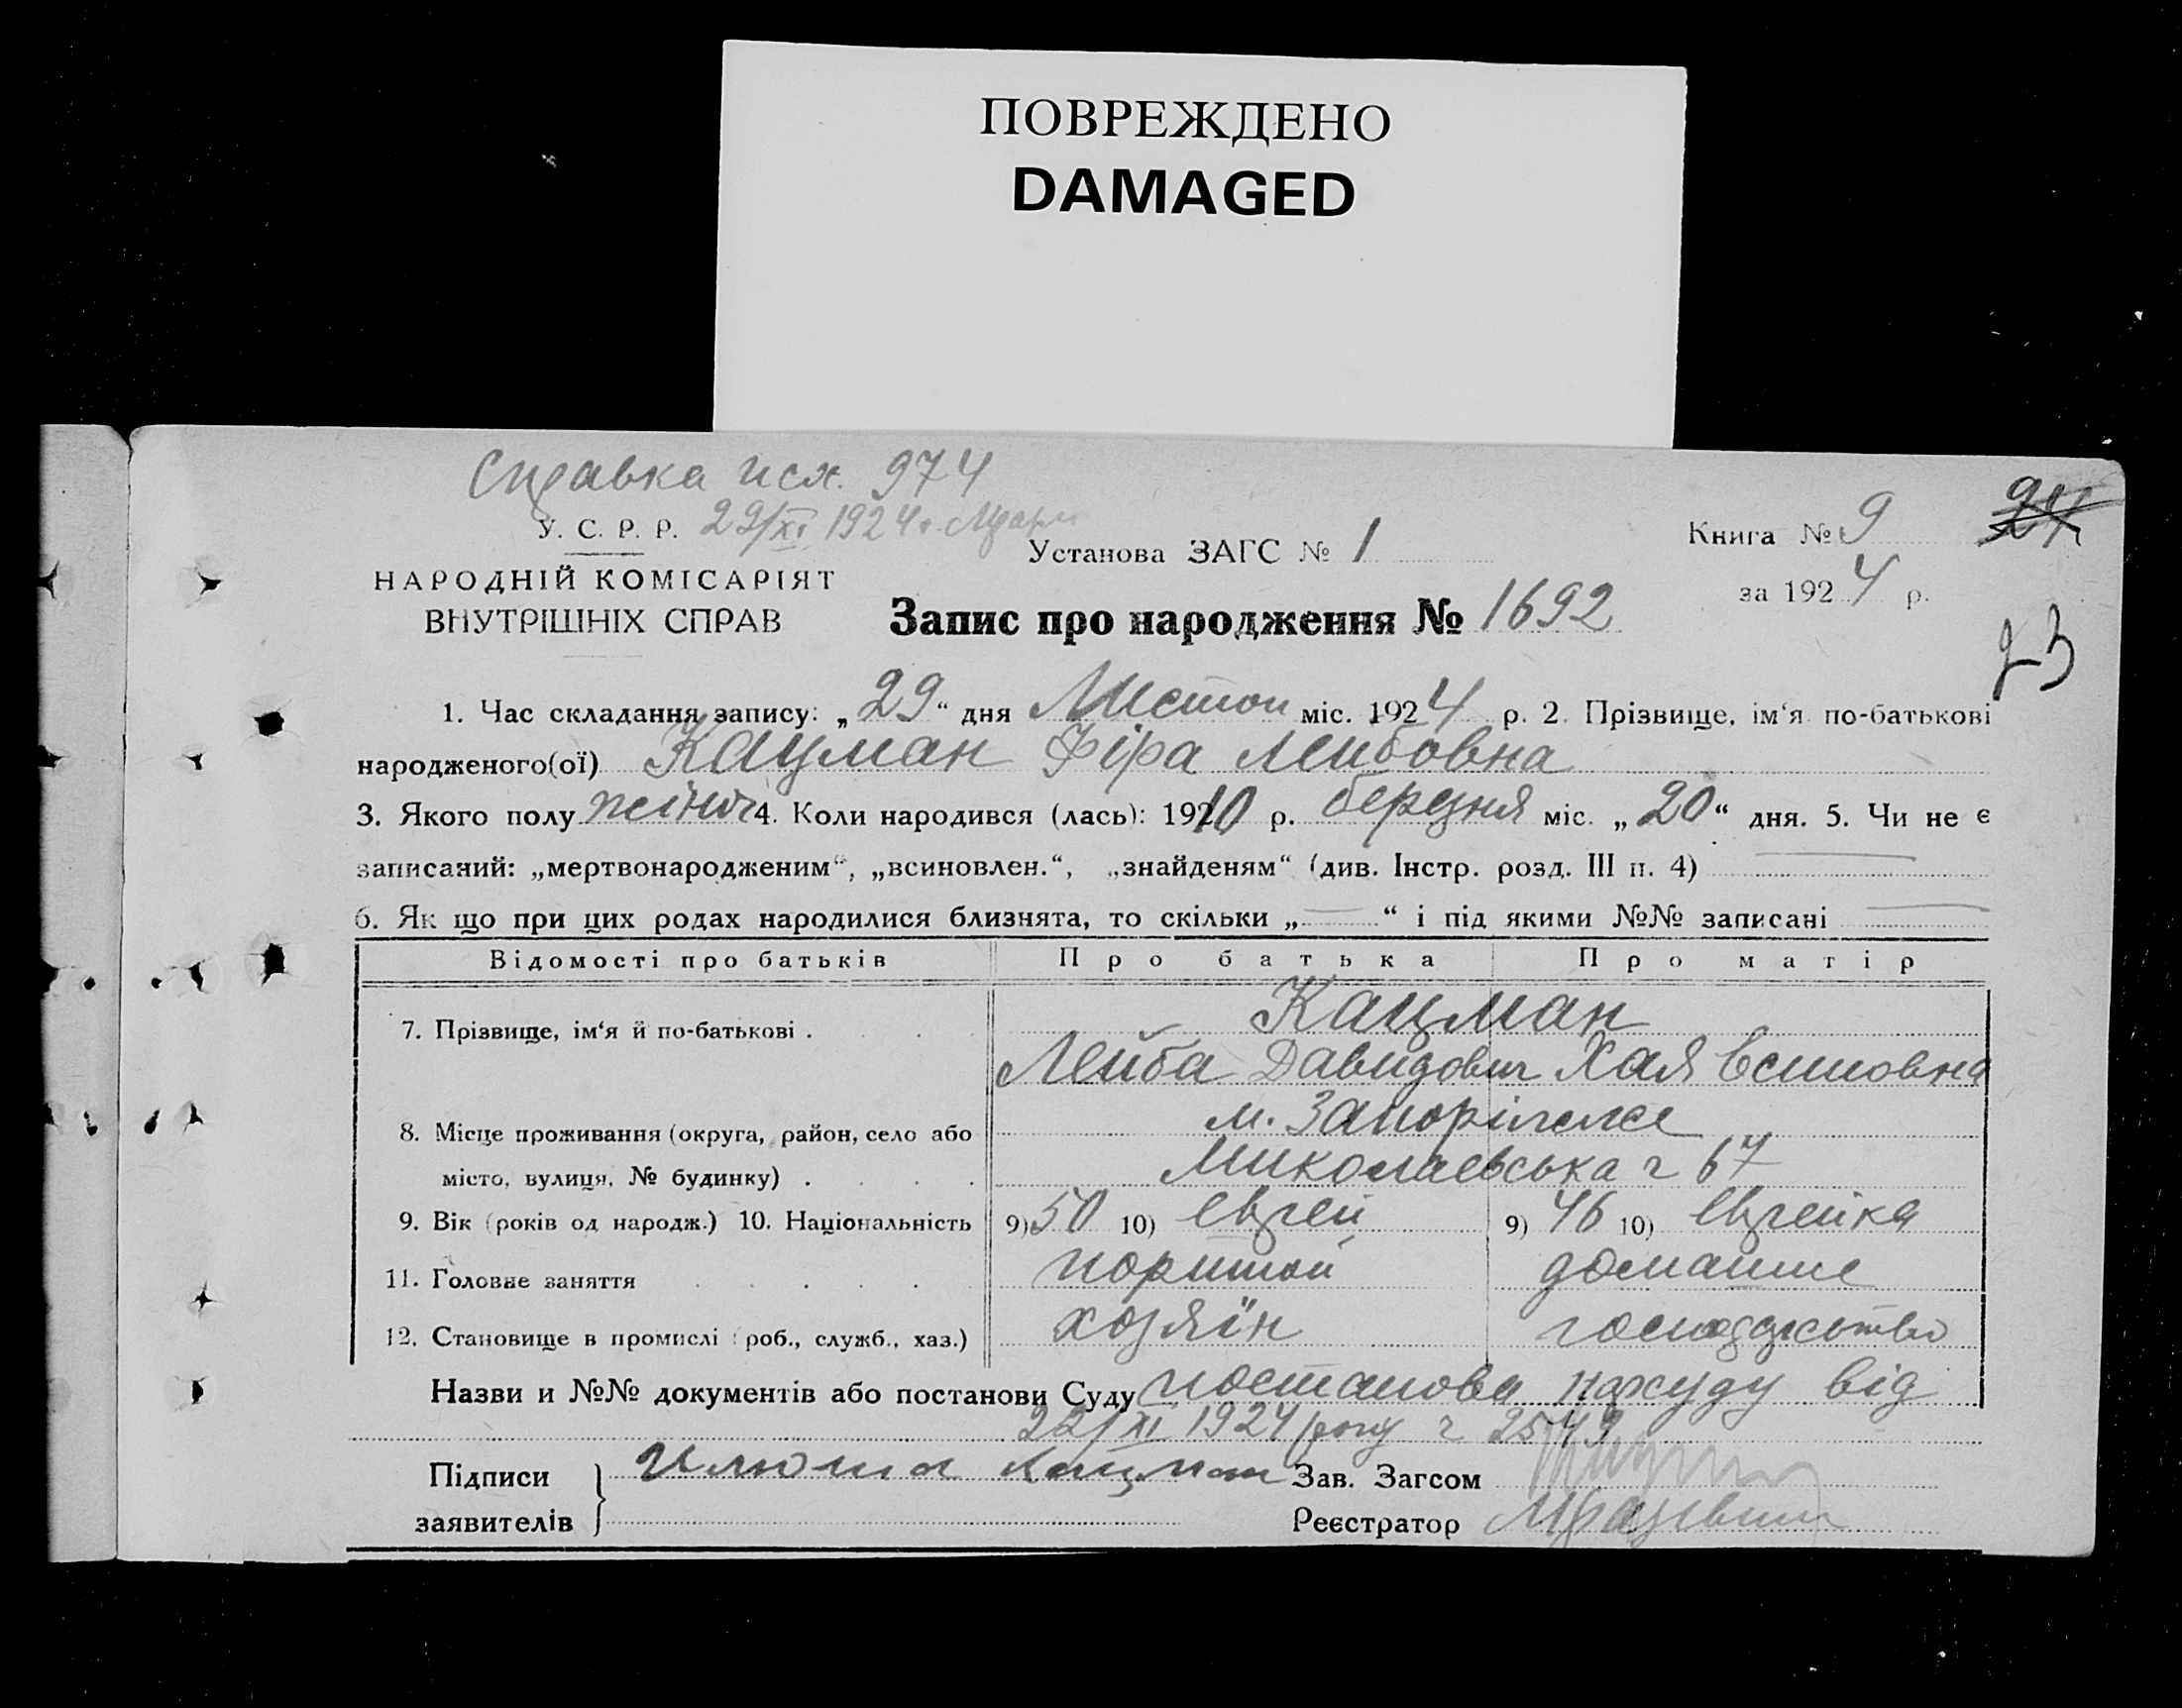 ПОВРЕЖДЕНО
DAMAGED
Справка исх. 974
У. С. Р. Р. 29/XI 1924 г.
Установа ЗАГС № 1
Книга № 9
24
за 1924 р.
НАРОДНІЙ КОМІСАРІЯТ
ВНУТРІШНІХ СПРАВ
Запис про народження № 1692
23
1. Час складання запису: „29“ дня Листоп міс. 1924 р. 2. Прізвище, ім‘я по-батькові
народженого(ої) Кацман Фіра Лейбовна
3. Якого полу жіноч 4. Коли народився (лась): 1910 р. березня міс. „20“ дня. 5. Чи не є
записаний: „мертвонародженим“, „всиновлен.“, „знайденям“ (див. Інстр. розд. III п. 4) —
6. Як що при цих родах народилися близнята, то скільки „—“ і під якими №№ записані —
Відомості про батьків Про батька Про матір
7. Прізвище, ім‘я й по-батькові . Кацман
Лейба Давидович Хая
8. Місце проживання (округа, район, село або м. Запоріжже
місто, вулиця, № будинку) . Миколаевська ч 67
9. Вік (років од народж.) 10. Національність 9) 50 10) Еврей 9) 46 10) Еврейка
11. Головне заняття портной домашнє
12. Становище в промислі (роб., служб., хаз.) хозяїн господарство
Назви и №№ документів або постанови Суду постанова нарсуду від
22/XI 1924 року ч 2549
Підписи Илюша Кацман Зав. Загсом
заявителів Реєстратор